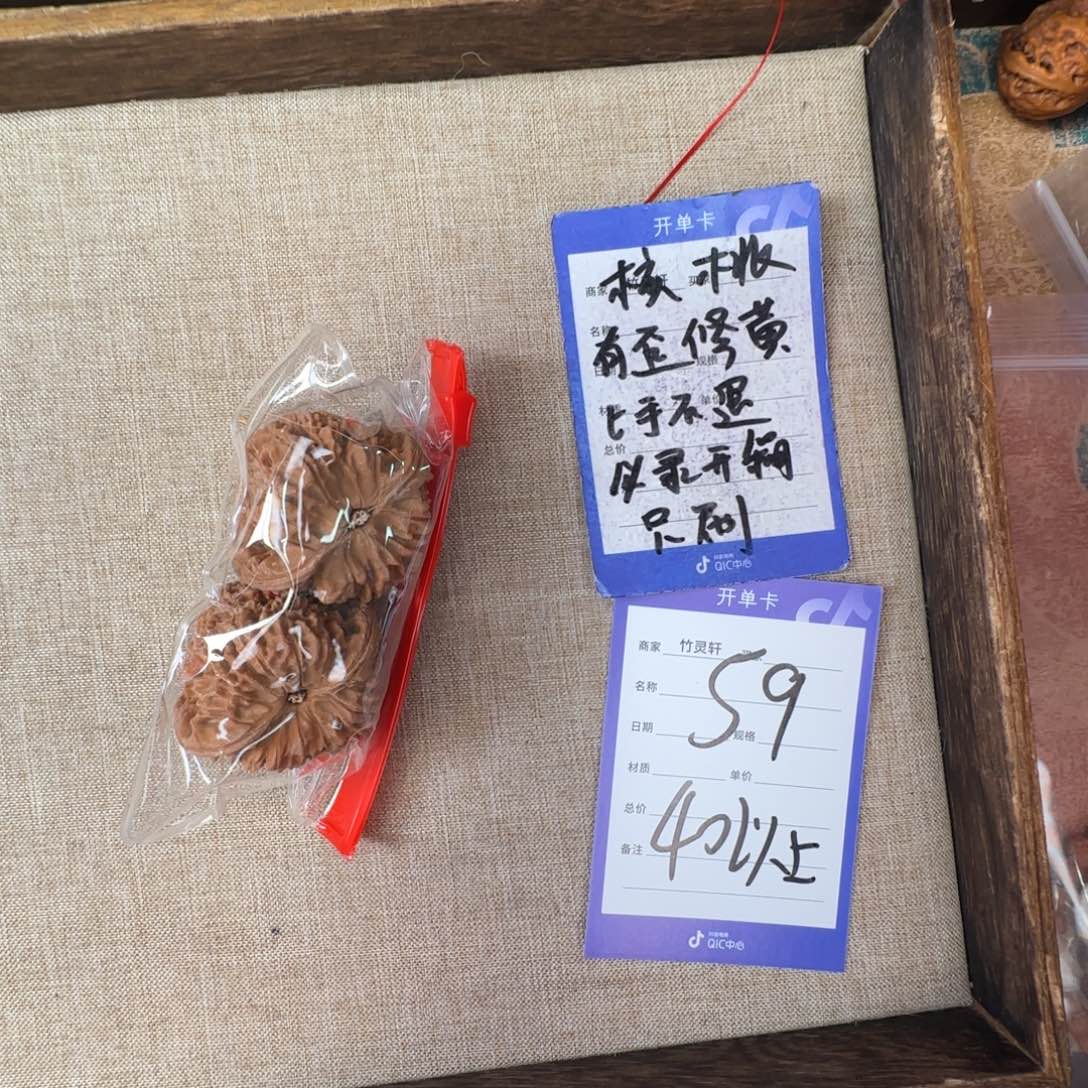 开单卡
商家 买家
核桃
名称
有歪修黄
规格
上手不退
总价
必录开箱
只刷
抖音电商
QIC中心
开单卡
商家 竹灵轩
名称
59
日期 规格
材质 单价
总价
40以上
备注
抖音电商
QIC中心